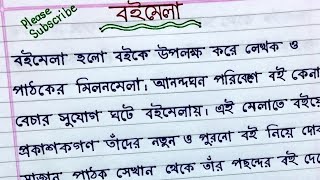 Please
Subscribe
বইমেলা
বইমেলা হলো বইকে উপলক্ষ করে লেখক ও
পাঠকের মিলনমেলা। আনন্দঘন পরিবেশে বই কেনা
বেচার সুযোগ ঘটে বইমেলায়। এই মেলাতে বইয়ে
প্রকাশকগণ তাঁদের নতুন ও পুরনো বই নিয়ে দোক
পাঠক সেখান থেকে তাঁর পছন্দের বই দে